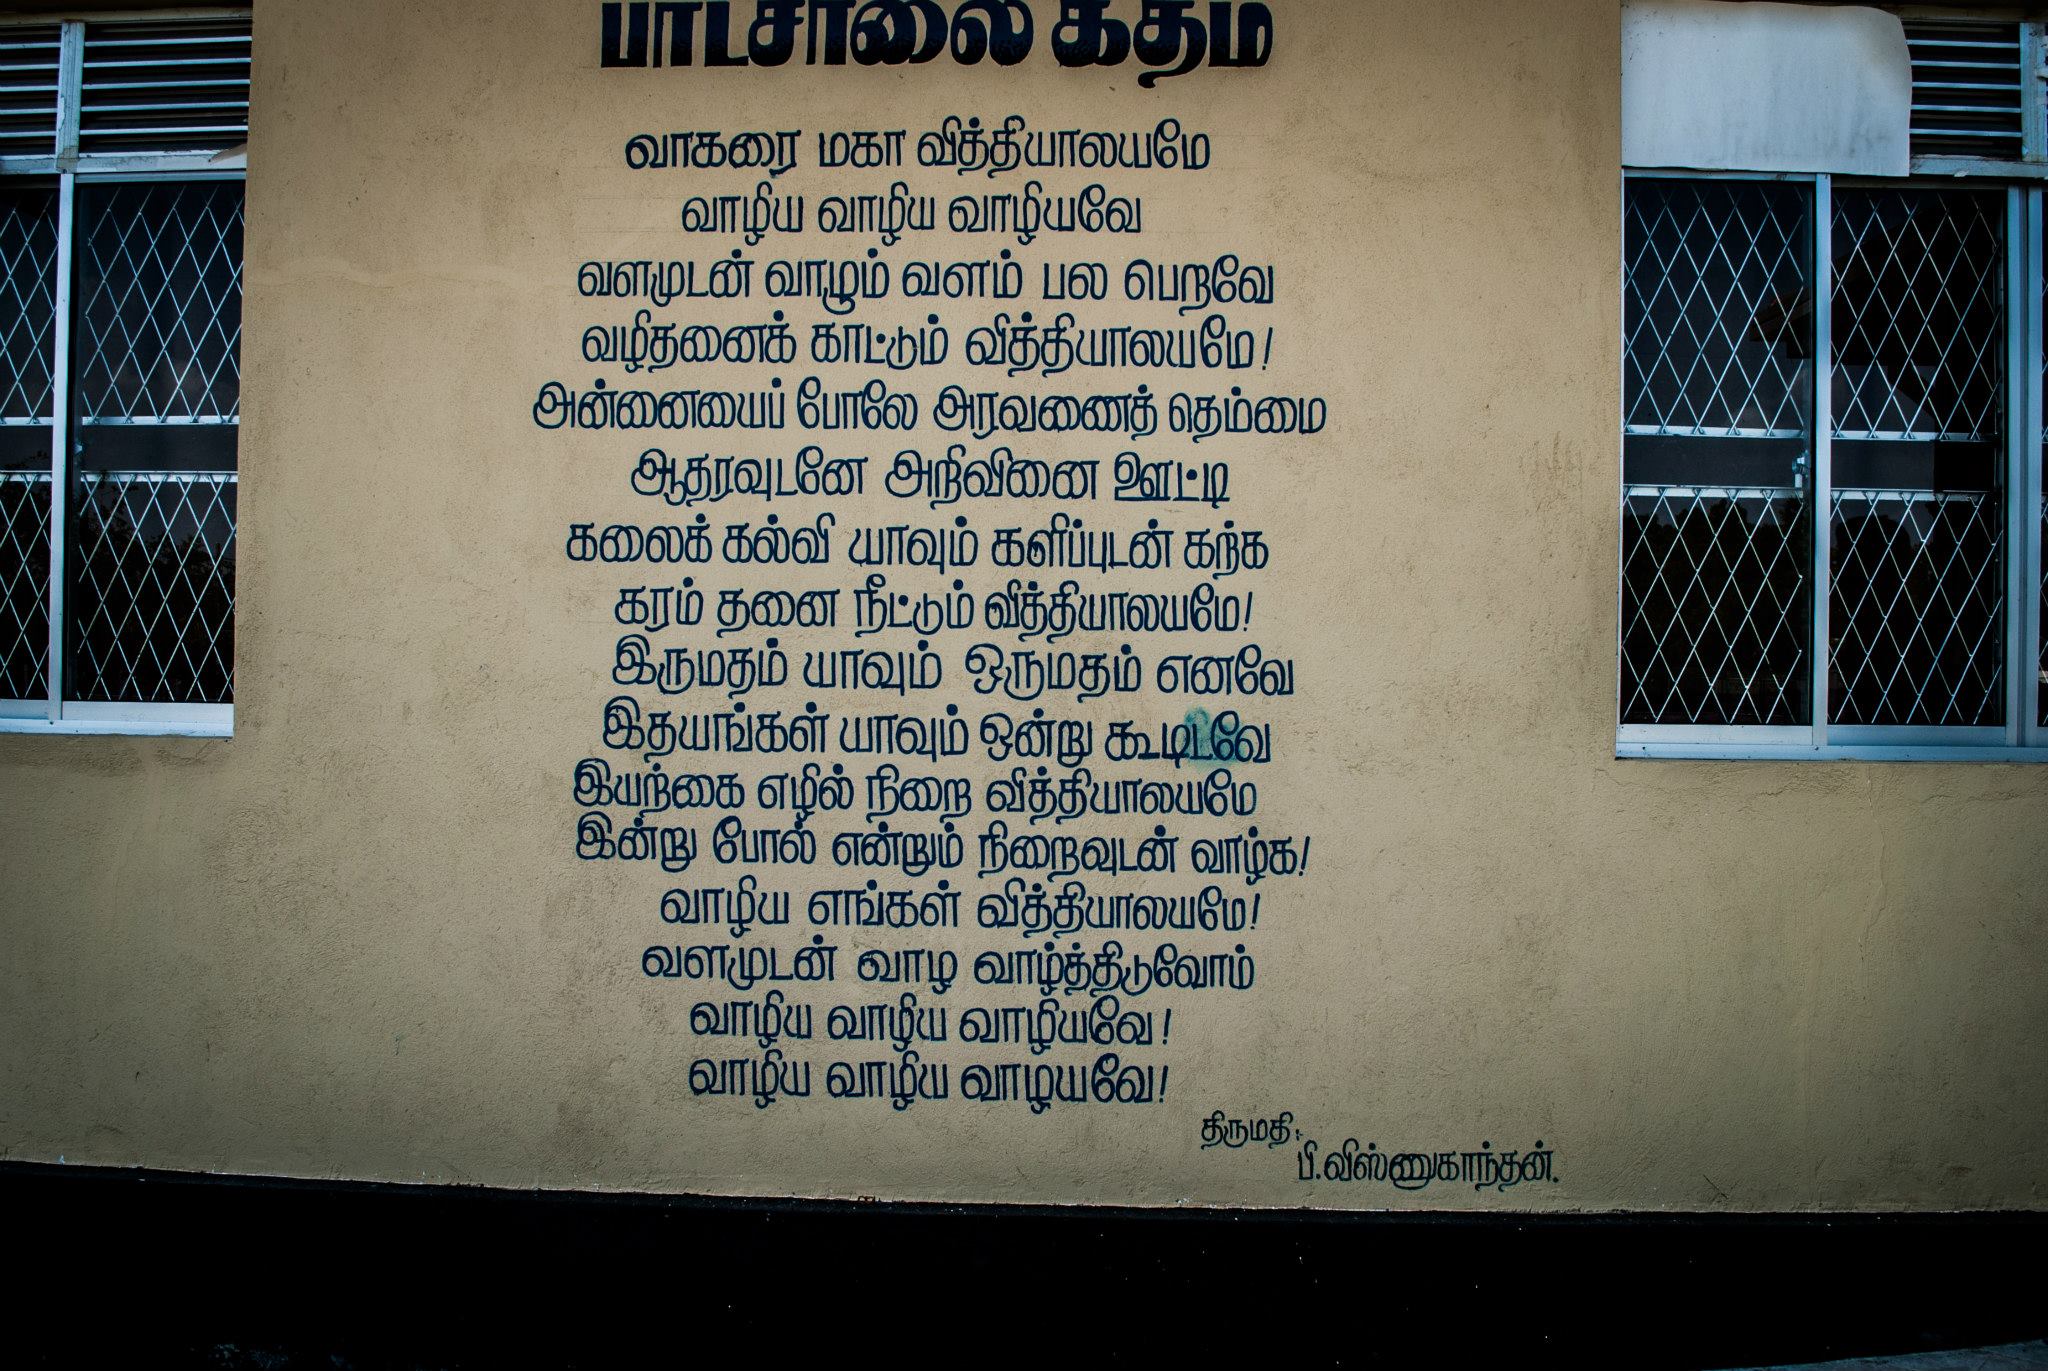 பாடசாலை கீதம்
வாகரை மகா வித்தியாலயமே
வாழிய வாழிய வாழியவே
வளமுடன் வாழும் வளம் பல பெறவே
வழிதனைக் காட்டும் வித்தியாலயமே!
அன்னையைப் போலே அரவணைத் தெம்மை
ஆதரவுடனே அறிவினை ஊட்டி
கலைக் கல்வி யாவும் களிப்புடன் கற்க
கரம் தனை நீட்டும் வித்தியாலயமே!
இருமதம் யாவும் ஒருமதம் எனவே
இதயங்கள் யாவும் ஒன்று கூடிடவே
இயற்கை எழில் நிறை வித்தியாலயமே
இன்று போல் என்றும் நிறைவுடன் வாழ்க!
வாழிய எங்கள் வித்தியாலயமே!
வளமுடன் வாழ வாழ்த்திடுவோம்
வாழிய வாழிய வாழியவே!
வாழிய வாழிய வாழயவே!
திருமதி:
பி.விஸ்ணுகாந்தன்.